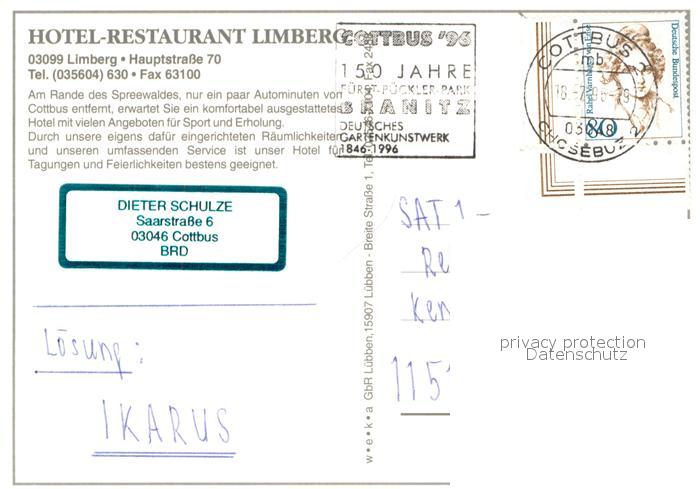 HOTEL-RESTAURANT LIMBERG
03099 Limberg • Hauptstraße 70
Tel. (035604) 630 • Fax 63100
Am Rande des Spreewaldes, nur ein paar Autominuten von
Cottbus entfernt, erwartet Sie ein komfortabel ausgestattetes
Hotel mit vielen Angeboten für Sport und Erholung.
Durch unsere eigens dafür eingerichteten Räumlichkeiten
und unseren umfassenden Service ist unser Hotel für
Tagungen und Feierlichkeiten bestens geeignet.
COTTBUS '96
150 JAHRE
FÜRST-PÜCKLER-PARK
BRANITZ
DEUTSCHES
GARTENKUNSTWERK
1846-1996
COTTBUS 2
mb
03048
CHOSEBUZ 2
Deutsche Bundespost
80
DIETER SCHULZE
Saarstraße 6
03046 Cottbus
BRD
w•e•k•a GbR Lübben, 15907 Lübben - Breite Straße 1, Te
SAT 1 -
Re
Ken
115
Lösung:
IKARUS
privacy protection
Datenschutz